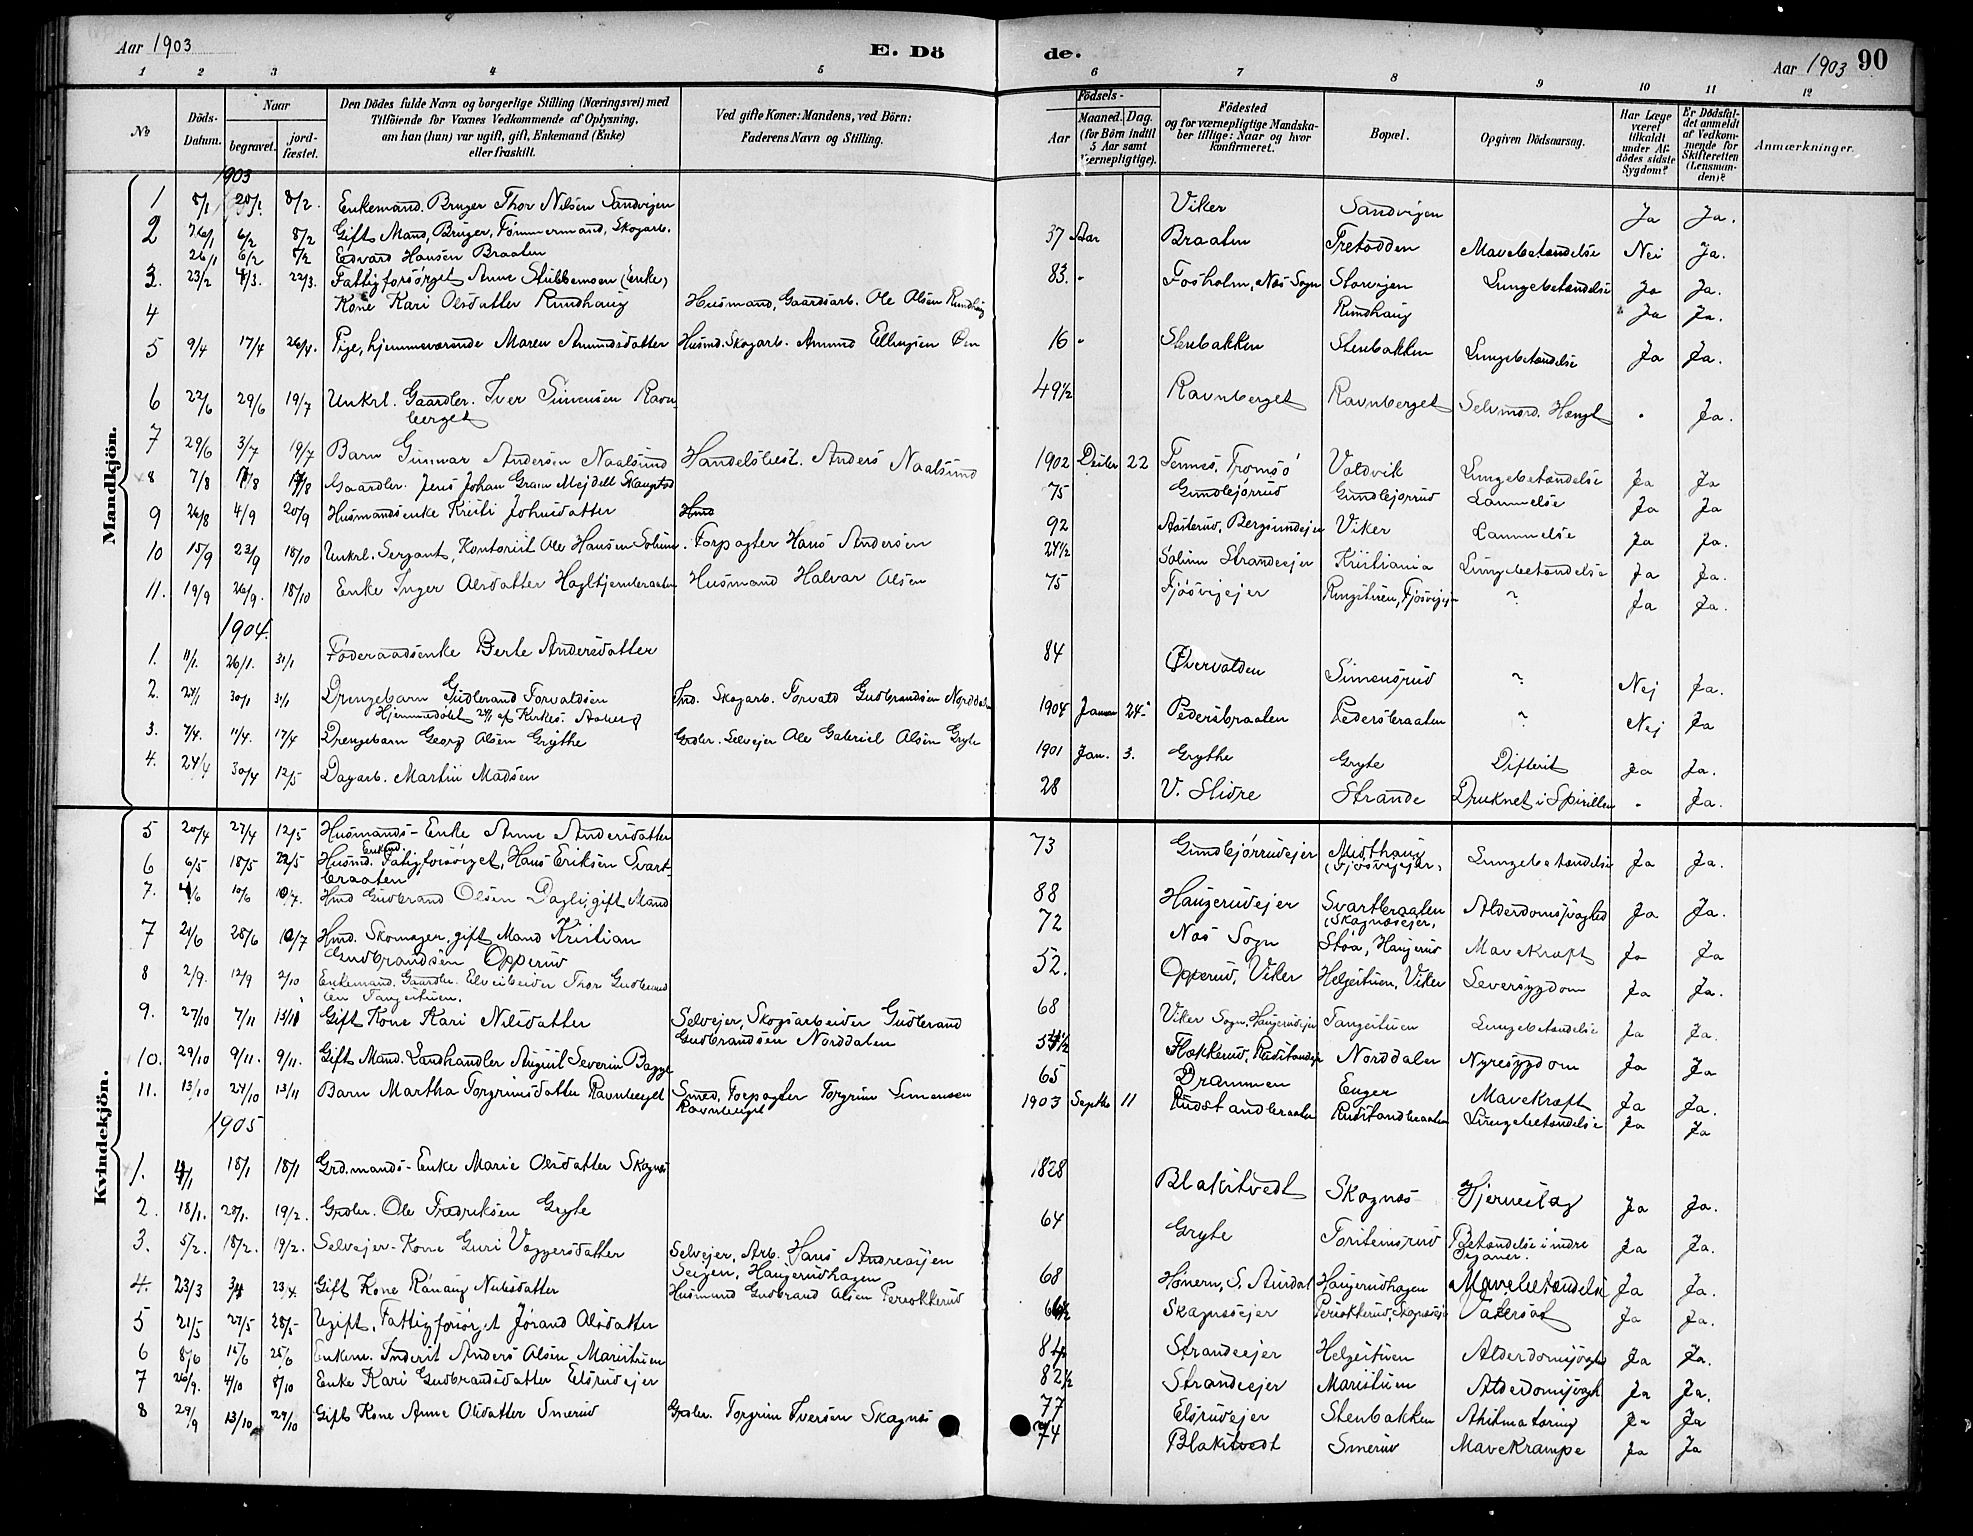 Aar 1903
E. Dö
de.
Aar 1903 90
1 2 3 4 5 6 7 8 9 10 11 12
No
Döds-Datum.
Naar
begravet.
jord-fæstet.
Den Dödes fulde Navn og borgerlige Stilling (Næringsvei) med
Tilföiende for Voxnes Vedkommende af Oplysning,
om han (hun) var ugift, gift, Enkemand (Enke)
eller fraskilt.
Ved gifte Koner: Mandens, ved Börn:
Faderens Navn og Stilling.
Födsels-
Aar
Maaned. Dag.
(for Börn indtil
5 Aar samt
Værnepligtige).
Födested
og for værnepligtige Mandska-
ber tillige: Naar og hvor
konfirmeret.
Bopæl.
Opgiven Dödsaarsag.
Har Læge
været
tilkaldt
under Af-
dödes sidste
Sygdom?
Er Dödsfal-
det anmeldt
af Vedkom-
mende for
Skifteretten
(Lensman-
den)?
Anmærkninger.
Mandkjön.
1903
1 8/1 20/1 8/2. Enkemand. Bruger Thor Nilsen Sandvigen Viker Sandvigen Ja Ja.
2 26/1 6/2 8/2 Gift Mand, Bruger, Tømmermand, Skogarb. 37 Aar Braaten Tretodden Mavebetændelse Nei Ja.
26/1 6/2 8/2 Edvard Hansen Braaten
3. 23/2 4/3. 22/3. Fattigforsørget Anne Stubbemoen (Enke) 83. " Fosholm, Næs Sogn Storvigen Lungebetændelse Ja Ja.
4 Kone Kari Olsdatter Rundhaug Husmand, Gaardsarb. Ole Olsen Rundhaug Rundhaug Ja Ja.
5 9/4 17/4 26/4. Pige, hjemmeværende Maren Amundsdatter Husmd. Skogarb. Amund Ellingsen Øen 16 " Stenbakken Stenbakken Lungebetændelse Ja Ja.
6 22/6 29/6 19/7 Unkrl. Gaardbr. Iver Simensen Ravn- 49 1/2 Ravnberget Ravnberget Selvmord. Hængt . Ja.
berget
7 29/6 3/7 19/7 Barn Gunnar Andersen Naalsund Handelsbest. Anders Naalsund 1902 Dcbr 22 Tennes, Tromsø Voldvik Lungebetændelse Ja Ja
8 7/8 17/8 Gaardbr. Jens Johan Gram Mejdell Skaugstad 75 Gundbjørrud Gundbjørrud Lammelse Ja Ja
9 26/8 4/9 20/9 Husmandsenke Kristi Johnsdatter Hmd 92 Aasterud, Bergsundejer Viker Lammelse Ja Ja.
10 15/9 23/9 18/10 Unkrl. Sergant, Kontorist Ole Hansen Solum. Forpagter Hans Andersen 24 1/2 Solum Strandeejer Kristiania Lungebetændelse Ja Ja.
11. 19/9 26/9. 18/10 Enke Inger Olsdatter Hogltjernbraaten Husmand Halvar Olsen 75 Fjøsvigejer Ringstuen, Fjøsvigejer ? Ja Ja.
1904.
1. 11/1. 26/1. 31/1 Føderaadsenke Berte Andersdatter 84 Øvervolden Simensrud ? Nej Ja.
2. 24/1 30/1 31/1 Drengebarn Gudbrand Torvaldsen Ind. Skogarb. Torvald Gudbrandsen Norddalen 1904 Januar 24. Pedersbraaten Pedersbraaten ? Nej Ja
Hjemmedøbt 24/1 af Kirkes. Aaberg
3. 7/4. 11/4. 17/4 Drengebarn Georg Olsen Grythe Grdbr. Selvejer Ole Gabriel Olsen Gryte 1901 Jan. 3. Grythe Gryte Difterit Ja Ja.
4. 24/4 30/4 12/5 Dagarb. Martin Madsen 28 V. Slidre Strande Druknet i Spirillen . Ja.
Kvindekjön.
5 20/4 27/4 12/5 Husmands-Enke Anne Andersdatter 73 Gundbjørrudejer Midthaug Lungebetændelse Ja Ja.
(Fjøsvigejer)
6 6/5 18/5 22/5 Husmd. Enkmd. Fatigforsørget, Hans Eriksen Svart- 88 Haugerudejer Svartbraaten Alderdomssvaghed Ja Ja.
braaten (Skagnæsejer)
7. 4/6 10/6 10/7. Hmd Gudbrand Olsen Dagli, gift Mand 72 Næs Sogn Støa, Haugerud Mavekræft Ja Ja
7 21/6 28/6 10/7 Hmd. Skomager, gift Mand Kristian 52. Opperud, Viker Helgestuen, Viker Leversygdom Ja Ja.
Gudbrandsen Opperud
8 2/9. 12/9 2/10 Enkemand, Gaardbr. Elvarbeider Thor Gudbrand- 68 Viker Sogn, Haugerudejer Tangestuen Lungebetændelse Ja Ja.
sen Tangestuen.
9. 27/10 7/11 13/11 Gift Kone Kari Nilsdatter Selvejer, Skogsarbeider Gudbrand 54 1/2 Flakkerud, Rustandejer Norddalen Nyresygdom Ja Ja
Gudbrandsen Norddalen
10. 29/10 9/11. 9/11. Gift Mand. Landhandler August Severin Bagge 65 Drammen Enger Mavekræft Ja Ja.
11. 13/10 24/10 13/11 Barn Martha Torgrimsdatter Ravnberget Smed, Forpagter Torgrim Simensen 1903 Septbr 11 Rudstandbraaten Rudstandbraaten Lungebetændelse Ja Ja
Ravnberget
1905
1. 4/1 18/1 18/1 Grd.mands-Enke Marie Olsdatter Skagnæs 1828 Blakstvedt Skagnæs Hjerneslag Ja Ja.
2. 18/1. 28/1. 19/2. Grdbr. Ole Fredriksen Gryte 64 Gryte Torstensrud Betændelse i indre Ja Ja.
Organer.
3. 5/2. 18/2. 19/2. Selvejer-Kone Guri Vaggersdatter Selvejer, Arb. Hans Andreassen 68 Hønern, S. Aurdal Haugerudhagen Mavebetændelse Ja Ja.
Seigen, Haugerudhagen
4. 23/3 3/4 23/4. Gift Kone Rønaug Nubsdatter Husmand Gudbrand Olsen Persokkerud 66 1/2 Skagnæsejer Persokkerud, Skagnæsejer Vatersot Ja Ja.
5 21/5 27/5 28/5 Ugift, Fattigforsørget Jørand Olsdatter 84 Strandeejer Helgestuen Alderdomssvaghed Ja Ja.
6 8/6 15/6 25/6 Enkem. Inderst Anders Olsen Maristuen 82 1/2 Strandeejer Maristuen Alderdomssvagh. Ja Ja.
7 26/9. 4/10 8/10 Enke Kari Gudbrandsdatter Elsrudejer 77 Elsrudejer Stenbakken Astma tæring Ja Ja
8 29/9 13/10 29/10 Gift Kone Anne Olsdatter Smerud Grdbr. Torgrim Iversen Skagnæs 74 Blakstvedt Smerud Mavekrampe Ja Ja